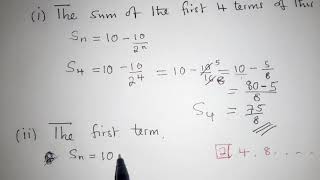 (i) The sum of the first 4 terms of this
Sn = 10 - 10/2^n
S4 = 10 - 10/2^4 = 10 - 10/16 5/8 = 10/1 - 5/8
= 80-5/8
S4 = 75/8
(ii) The first term.
Sn = 10
2, 4, 8, ....